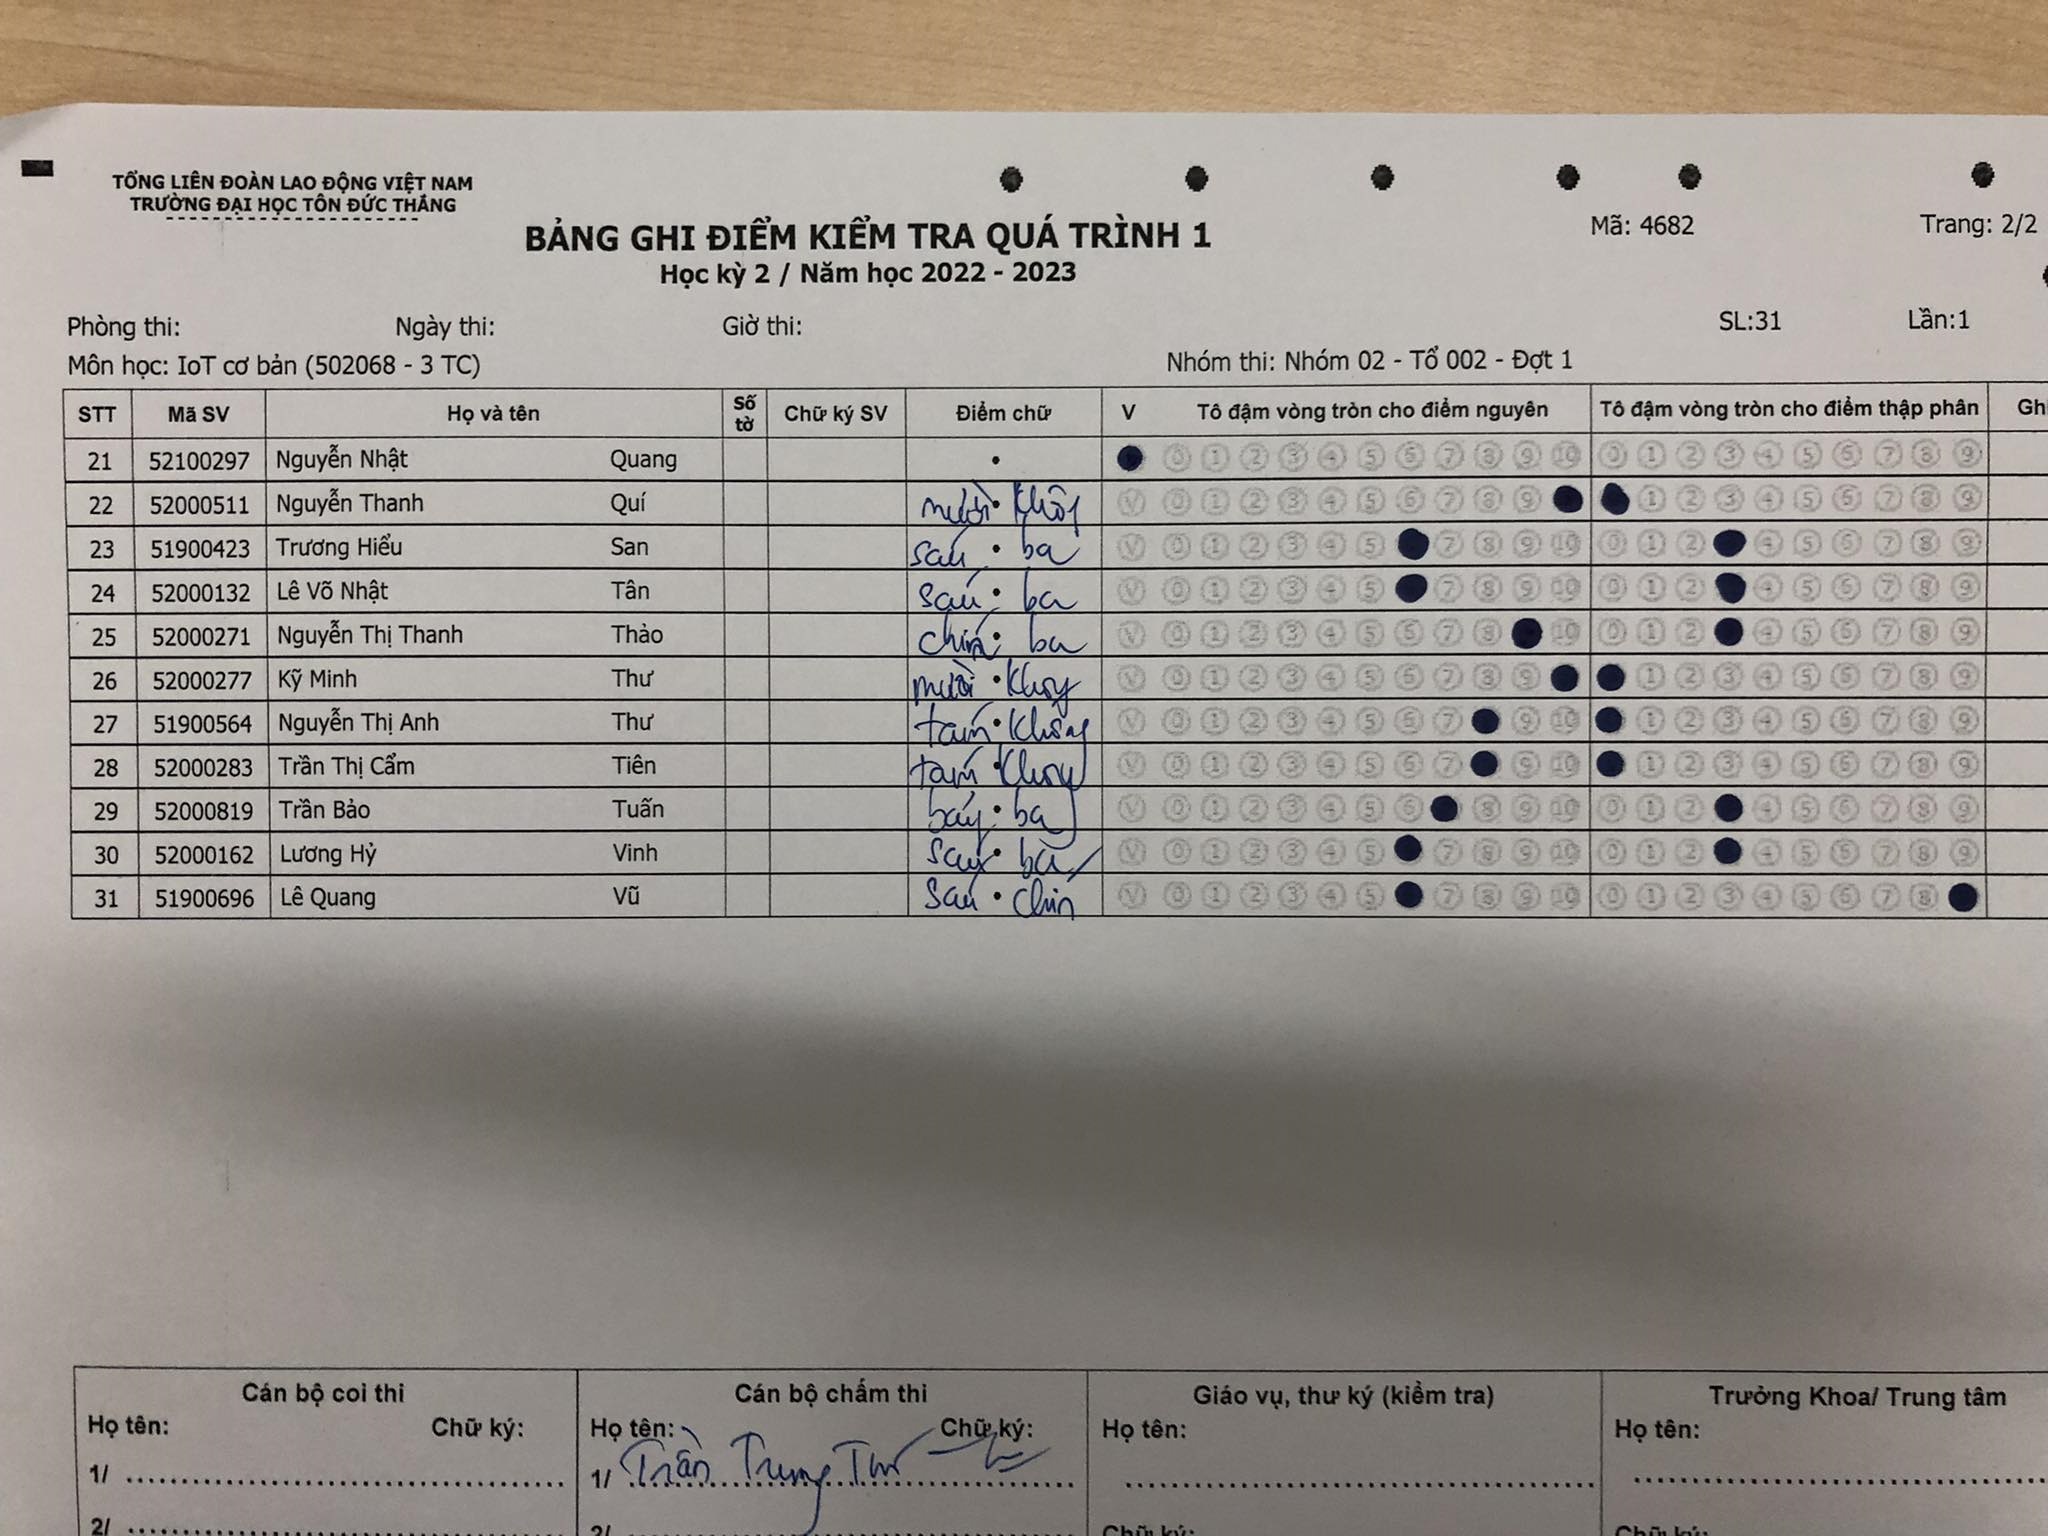 TỔNG LIÊN ĐOÀN LAO ĐỘNG VIỆT NAM
TRƯỜNG ĐẠI HỌC TÔN ĐỨC THẮNG
BẢNG GHI ĐIỂM KIỂM TRA QUÁ TRÌNH 1
Học kỳ 2 / Năm học 2022 - 2023
Mã: 4682 Trang: 2/2
Phòng thi: Ngày thi: Giờ thi: SL:31 Lần:1
Môn học: IoT cơ bản (502068 - 3 TC) Nhóm thi: Nhóm 02 - Tổ 002 - Đợt 1
STT Mã SV Họ và tên Số tờ Chữ ký SV Điểm chữ V Tô đậm vòng tròn cho điểm nguyên Tô đậm vòng tròn cho điểm thập phân
21 52100297 Nguyễn Nhật Quang 0 1 2 3 4 5 6 7 8 9 10 0 1 2 3 4 5 6 7 8 9
22 52000511 Nguyễn Thanh Quí mười . không V 0 1 2 3 4 5 6 7 8 9 1 2 3 4 5 6 7 8 9
23 51900423 Trương Hiểu San sáu . ba V 0 1 2 3 4 5 7 8 9 10 0 1 2 4 5 6 7 8 9
24 52000132 Lê Võ Nhật Tân sáu . ba V 0 1 2 3 4 5 7 8 9 10 0 1 2 4 5 6 7 8 9
25 52000271 Nguyễn Thị Thanh Thảo chín . ba V 0 1 2 3 4 5 6 7 8 10 0 1 2 4 5 6 7 8 9
26 52000277 Kỹ Minh Thư mười . không V 0 1 2 3 4 5 6 7 8 9 1 2 3 4 5 6 7 8 9
27 51900564 Nguyễn Thị Anh Thư tám . không V 0 1 2 3 4 5 6 7 9 10 1 2 3 4 5 6 7 8 9
28 52000283 Trần Thị Cẩm Tiên tám . không V 0 1 2 3 4 5 6 7 9 10 1 2 3 4 5 6 7 8 9
29 52000819 Trần Bảo Tuấn bảy . ba V 0 1 2 3 4 5 6 8 9 10 0 1 2 4 5 6 7 8 9
30 52000162 Lương Hỷ Vinh sáu . ba V 0 1 2 3 4 5 7 8 9 10 0 1 2 4 5 6 7 8 9
31 51900696 Lê Quang Vũ Sáu . chín V 0 1 2 3 4 5 7 8 9 10 0 1 2 3 4 5 6 7 8
Cán bộ coi thi Cán bộ chấm thi Giáo vụ, thư ký (kiểm tra) Trưởng Khoa/ Trung tâm
Họ tên: Chữ ký: Họ tên: Chữ ký: Họ tên: Họ tên:
1/ 1/ Trần Trung Tín
2/ 2/ Chữ ký: Chữ ký: